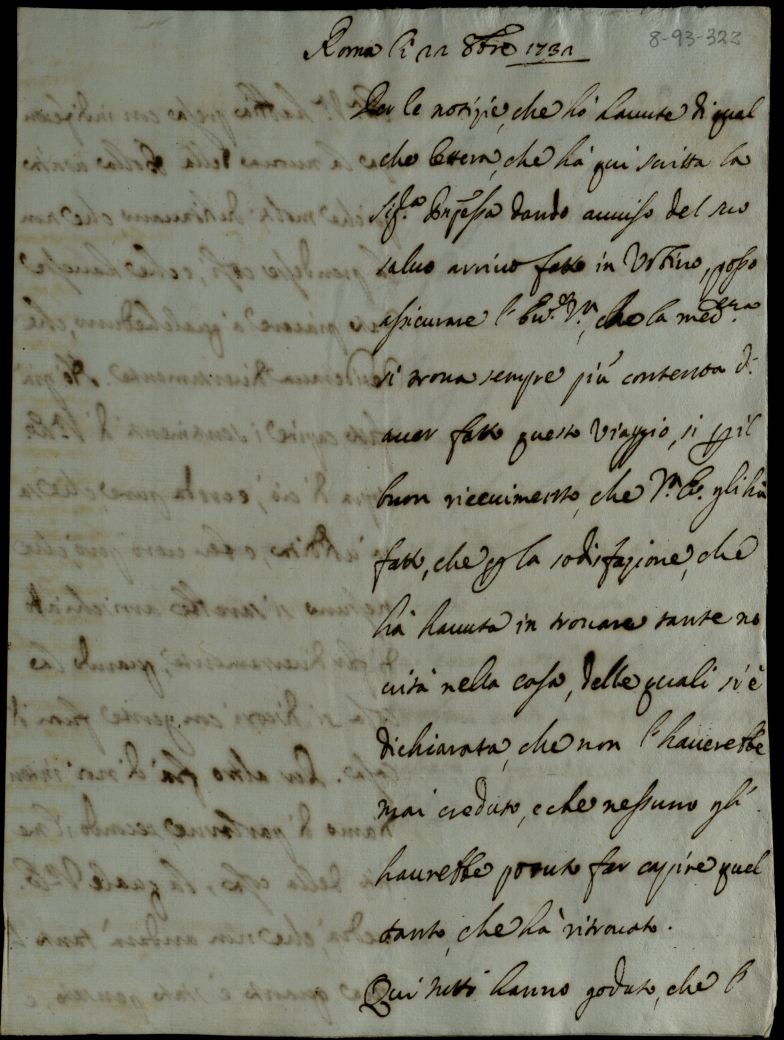 Roma li 22 8bre 1732
8-93-322
Per le notizie, che hò hauute di qual
che lettera, che hà qui scritta la
Sig.ra Prñpessa dando auuiso del suo
saluo arriuo fatto in Vrbino, posso
assicurare l'Em.a V.ra, che la med.ma
si troua sempre più contenta d'
auer fatto questo Viaggio, si p il
buon riceuimento, che V.ra E. gli hà
fatto, che p la sodisfazione, che
hà hauuta in trouare tante no
uità nella casa, delle quali si è
dichiarata, che non l'hauerebbe
mai creduto, e che nessuno gli
haurebbe potuto far capire quel
tanto, che hà ritrouato.
Qui tutti hanno goduto, che l'